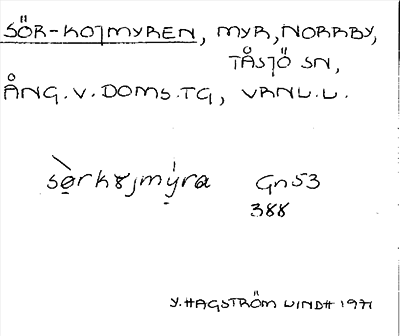 SÖR-KOJMYREN, MYR, NORRBY,
TÅSJÖ SN,
ÅNG. V. DOMS. TG, VRNL. L.
sörkojmýra Gn 53
388
Y. HAGSTRÖM LINDH 1971